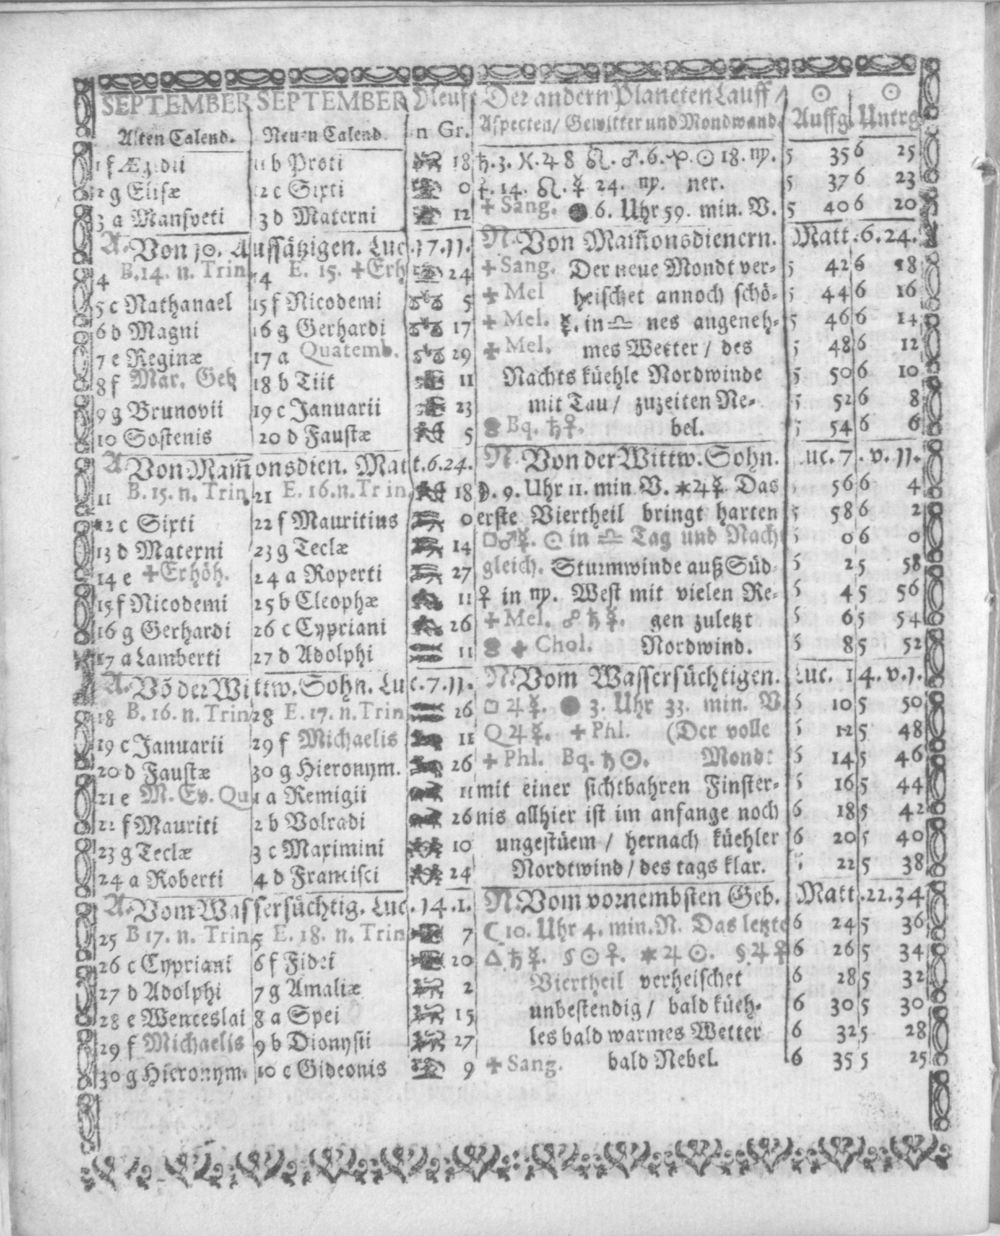 SEPTEMBER SEPTEMBER Neus Der andern Planeten Lauff ☉ ☉
Alten Calend. Neuen Calend. n Gr. Aspecten/ Gewitter und Mondwand. Auffg. Untrg
1 f Ægidii 11 b Proti 18 ♄. 3. ♓. ♃ 8 ♌. ♂. 6. ♈. ☉ 18. ♍. 5 35 6 25
2 g Elisæ 12 c Sixti 0 14. ♌. ☿ 24. ♍. ner. 5 37 6 23
3 a Mansveti 3 d Materni 12 + Sang. ● 6. Uhr 59. min. V. 5 40 6 20
A. Von 10. Aussätzigen. Luc. 17. 11. N. Von Mam̃onsdienern. Matt. 6. 24.
4 B. 14. n. Trin 14 E. 15. +Erh 24 +Sang. Der neue Mondt ver- 5 42 6 18
5 c Nathanael 15 f Nicodemi 5 + Mel heischet annoch schö- 5 44 6 16
6 d Magni 16 g Gerhardi 17 + Mel. ☿. in ♎ nes angeneh- 5 46 6 14
7 e Reginæ 17 a Quatemb. 29 + Mel. mes Wetter / des 5 48 6 12
8 f Mar. Geb 18 b Titi 11 Nachts küehle Nordwinde 5 50 6 10
9 g Brunovii 19 c Januarii 23 mit Tau / zuzeiten Ne- 5 52 6 8
10 Sostenis 20 d Faustæ 5 Bq. ♄♀. bel. 5 54 6 6
A. Von Mam̃onsdien. Mat t. 6. 24. N. Von der Wittw. Sohn. Luc. 7. v. 11.
11 B. 15. n. Trin. 21 E. 16. n. Trin. 18 ☽. 9. Uhr 11. min. V. ✶♃☿ Das 5 56 6 4
12 c Sixti 22 f Mauritius 0 erste Viertheil bringt harten 5 58 6 2
13 d Materni 23 g Teclæ 14 □♂☿. ☉ in ♎ Tag und Nacht 0 6 0
14 e +Erhöh. 24 a Roperti 27 gleich. Sturmwinde auß Süd- 2 5 58
15 f Nicodemi 25 b Cleophæ 11 ♀ in ♍. West mit vielen Re- 4 5 56
16 g Gerhardi 26 c Cypriani 26 + Mel. ☍♄☿. gen zuletzt 6 5 54
17 a Lamberti 27 d Adolphi 11 + Chol. Nordwind. 8 5 52
A. Võ der Wittw. Sohn. Luc. 7. 11. N. Vom Wassersüchtigen. Luc. 14. v. 1.
18 B. 16. n. Trin 28 E. 17. n. Trin 26 □♃☿. ● 3. Uhr 33. min. V. 10 5 50
19 c Januarii 29 f Michaelis 11 Q♃☿. + Phl. (Der volle 12 5 48
20 d Faustæ 30 g Hieronym. 26 + Phl. Bq. ♄☉. Mondt 14 5 46
21 e M. Ev. Qu 1 a Remigii 11 mit einer sichtbahren Finster- 16 5 44
22 f Mauriti 2 b Volradi 26 nis allhier ist im anfange noch 6 18 5 42
23 g Teclæ 3 c Maximini 10 ungestüem / hernach küehler 6 20 5 40
24 a Roberti 4 d Francisci 24 Nordtwind / des tags klar. 22 5 38
A. Vom Wassersüchtig. Luc. 14. 1. N. Vom vornembsten Geb. Matt. 22. 34
25 B 17. n. Trin 5 E. 18. n. Trin 7 ☾ 10. Uhr 4. min. N. Das letzte 6 24 5 36
26 c Cypriani 6 f Fidei 20 △♄☿. ☉☿. ✶♃☉. ♃♀ 6 26 5 34
27 d Adolphi 7 g Amaliæ 2 Viertheil verheischet 6 28 5 32
28 e Wenceslai 8 a Spei 15 unbestendig / bald küeh- 6 30 5 30
29 f Michaelis 9 b Dionysii 27 les bald warmes Wetter 6 32 5 28
30 g Hieronym. 10 c Gideonis 9 + Sang. bald Nebel. 6 35 5 25